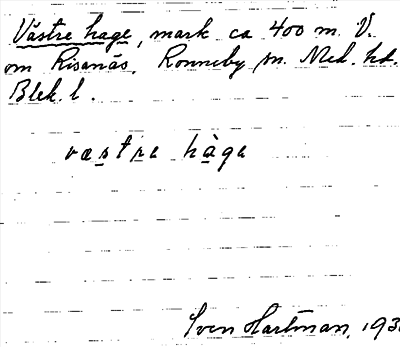 Västre hage, mark ca 400 m. V.
om Risanäs, Ronneby sn. Med. hd.
Blek. l.
væstre hàge
Sven Hartman, 193